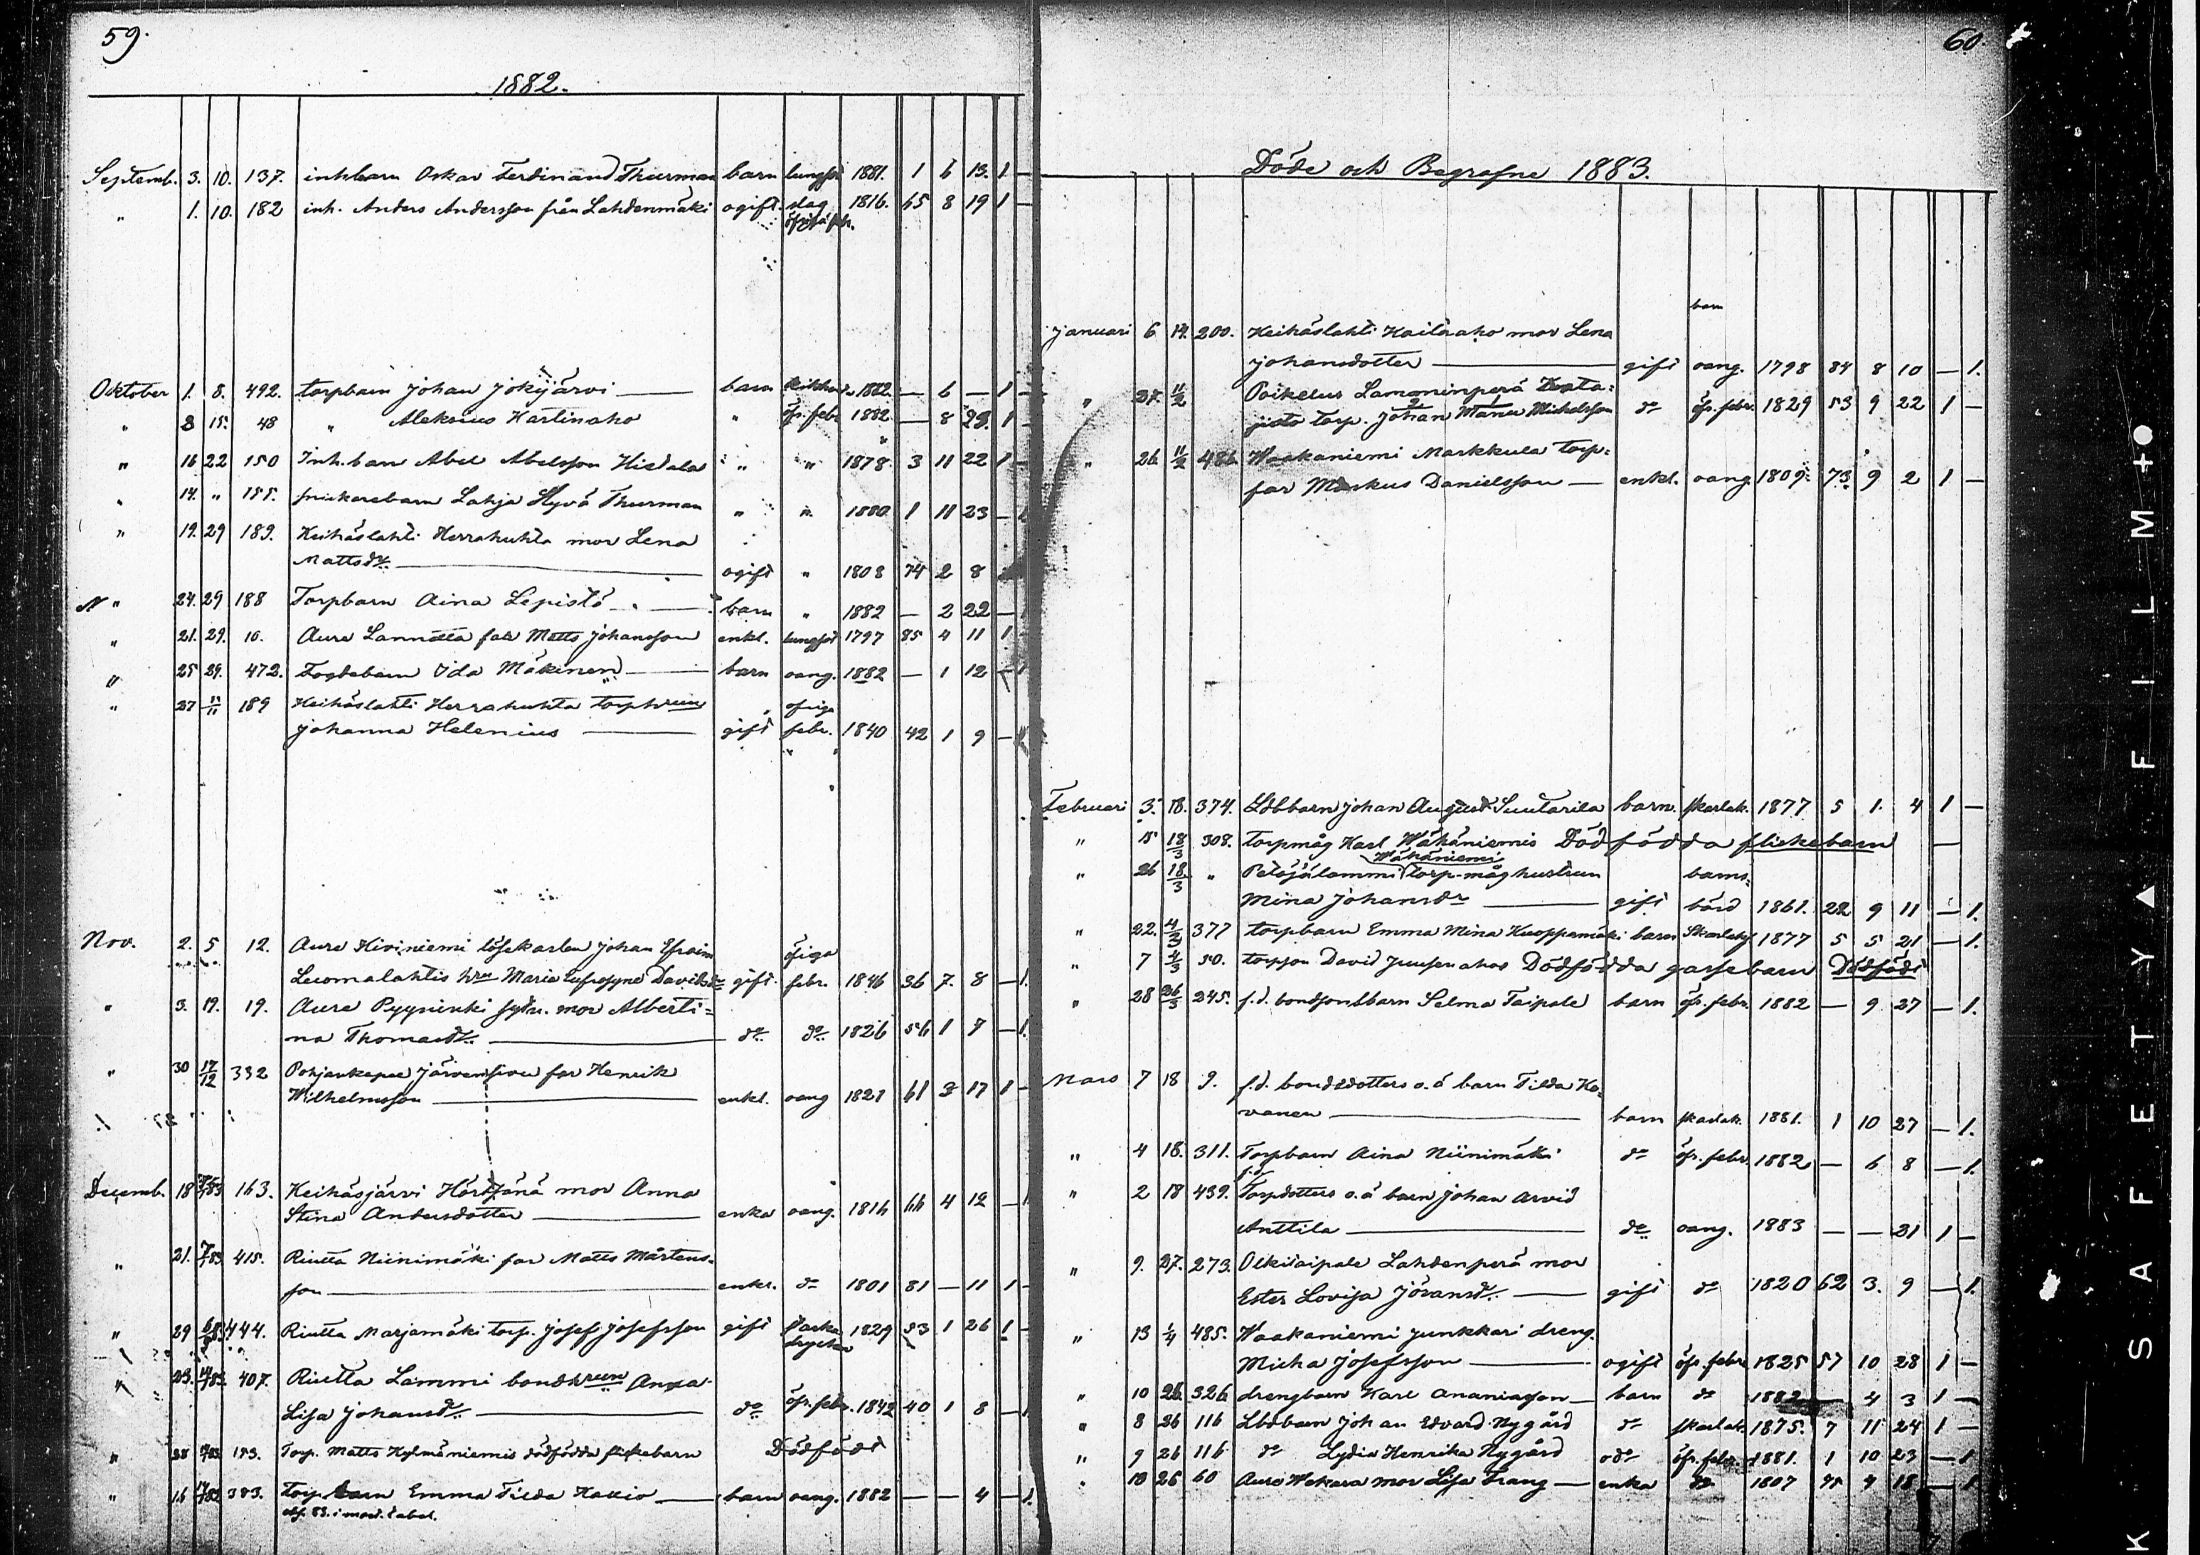 59.
1882.
Septemb. 3. 10. 137. inh.barn Oskar Ferdinand Thurman barn lungsot 1881. 1 6 13. 1 —
" 1. 10. 182 inh. Anders Andersson från Lahdenmäki ogift. slag 1816. 65 8 19 1 —
Oktober 1. 8. 492. torpbarn Johan Jokijärvi — barn kikhost 1882. — 6 — 1 —
" 8 15. 48 " Aleksius Karlinaho " öfr. febr. 1882 — 8 23. 1 —
" 16 22 150 Inh.barn Abel Abelsson Hietala " " 1878. 3 11 22 1 —
" 14. " 155. snickarebarn Lahja Hyvä Thurman " " 1880. 1 11 23 — 1
" 19. 29 189. Keihäslahti Herrakuhta mor Lena
Mattsdr. — ogift " 1808 74 2 8
" 24. 29 188 Torpbarn Aina Lepistö — barn " 1882 — 2 22 — 1
" 21. 29. 10. Aure Lannetta far Matts Johansson enkl. lungsot 1797 85 4 11 1 —
" 25 29. 472. Fogdebarn Ida Mäkinen — barn oang. 1882 — 1 12 — 1
" 27 189 Keihäslahti Herrakuhta torphrun öfriga
Johanna Helenius — gift febr. 1840 42 1 9 — 1
Nov. 2. 5 12. Aure Kiviniemi lösekarlen Johan Efraim öfriga
Luomalahtis hrn Maria Eufrosyne Davidsdr gift. febr. 1846 36 7. 8 — 1.
" 3. 19. 19. Aure Pyysinki sytn. mor Alberti=
na Thomasdr. — do do 1826 56 1 9 — 1.
" 30 17/12 332 Pohjankapee Järvensivu far Henrik
Wilhelmsson — enkl. oang 1821 61 3 17 1 —
Decemb. 18 163. Keihäsjärvi Härdfänä mor Anna
Stina Andersdotter — enka oang. 1816 66 4 12 — 1
" 21. 415. Riutta Niinimäki far Matts Mårtens-
son — enkl. do 1801 81 — 11 1 —
" 29 444. Riutta Marjamäki torp. Josef Josefsson gift starka drycker 1829 53 1 26 1 —
" 23. 407. Riutta Lammi bondhrun Anna
Lisa Johansdr. — do öfr. febr. 1842 40 1 8 — 1
" 28 153. Torp. Matts Kylmäniemis dödfödda flickebarn Dödfödt
" 16 383. Torp.barn Emma Tilda Kokkio — barn oang. 1882 — — 4 — 1.
60.
Döde och Begrafne 1883.
Januari 6 14. 200. Keihäslahti Kaitaaho mor Lena
Johansdotter — gift oang. 1798 84 8 10 — 1.
" 27. 11/2 Poikelus Lamminperä
torp. Johan Manu Michelsson do öfr. febr. 1829 53 9 22 1 —
" 26. 11/2 486. Waakaniemi Markkula torp=
far Markus Danielsson — enkl. oang 1809. 73. 9 2 1 —
Februari 3. 18. 374. Ldbbarn Johan August Suutarila barn. skarlak. 1877 5 1. 4 1 —
" 15 18/3 308. torpmåg Karl Wähäniemis Dödfödda flickebarn —
Wähäniemi
" 26 18/3 " Petäjälammi torp-måg hustrun barns-
Mina Johansdr — gift börd 1861. 22 9 11 — 1.
" 22. 4/3 377 torpbarn Emma Mina Kuoppamäki barn Skarlak. 1877 5 5 21 — 1.
" 7 4/3 50. torpson David Juusenahos Dödfödda gossebarn Dödfödt
" 28 26/3 245. f.d. bondsons barn Selma Taipale barn öfr. febr. 1882 — 9 27 — 1.
Mars 7 18 9. f.d. bondedotters o.ä barn Tilda Ko-
vanen — barn skarlak. 1881. 1 10 27 — 1.
" 4 18. 311. Torpbarn Aina Niinimäki do öfr. febr. 1882 — 6 8 — 1.
f.d.
" 2 18 439. Torpdotters o.ä barn Johan Arvid
Anttila — do oang. 1883 — — 21 1 —
" 9. 27. 273. Olkitaipale Lahdenperä mor
Ester Lovisa Jöransdr. — gift do 1820 62 3. 9 — 1.
" 13 1/4 485. Waakaniemi Junkkari dreng
Micha Josefsson — ogift öfr. febr. 1825 57 10 28 1 —
" 10 26. 326 drengbarn Karl Ananiasson — barn do 1882 — 4 3 1 —
" 8 26 116 Ldbbarn Johan Edvard Nygård do skarlak. 1875. 7 11 24 1 —
" 9 26 116 do Lydia Henrika Nygård do öfr. febr. 1881. 1 10 23 — 1
" 10 26 60 Aure Wakara mor Lisa Frang — enka do 1807 75 9 18 — 1
K SAFETY ▲ FILM